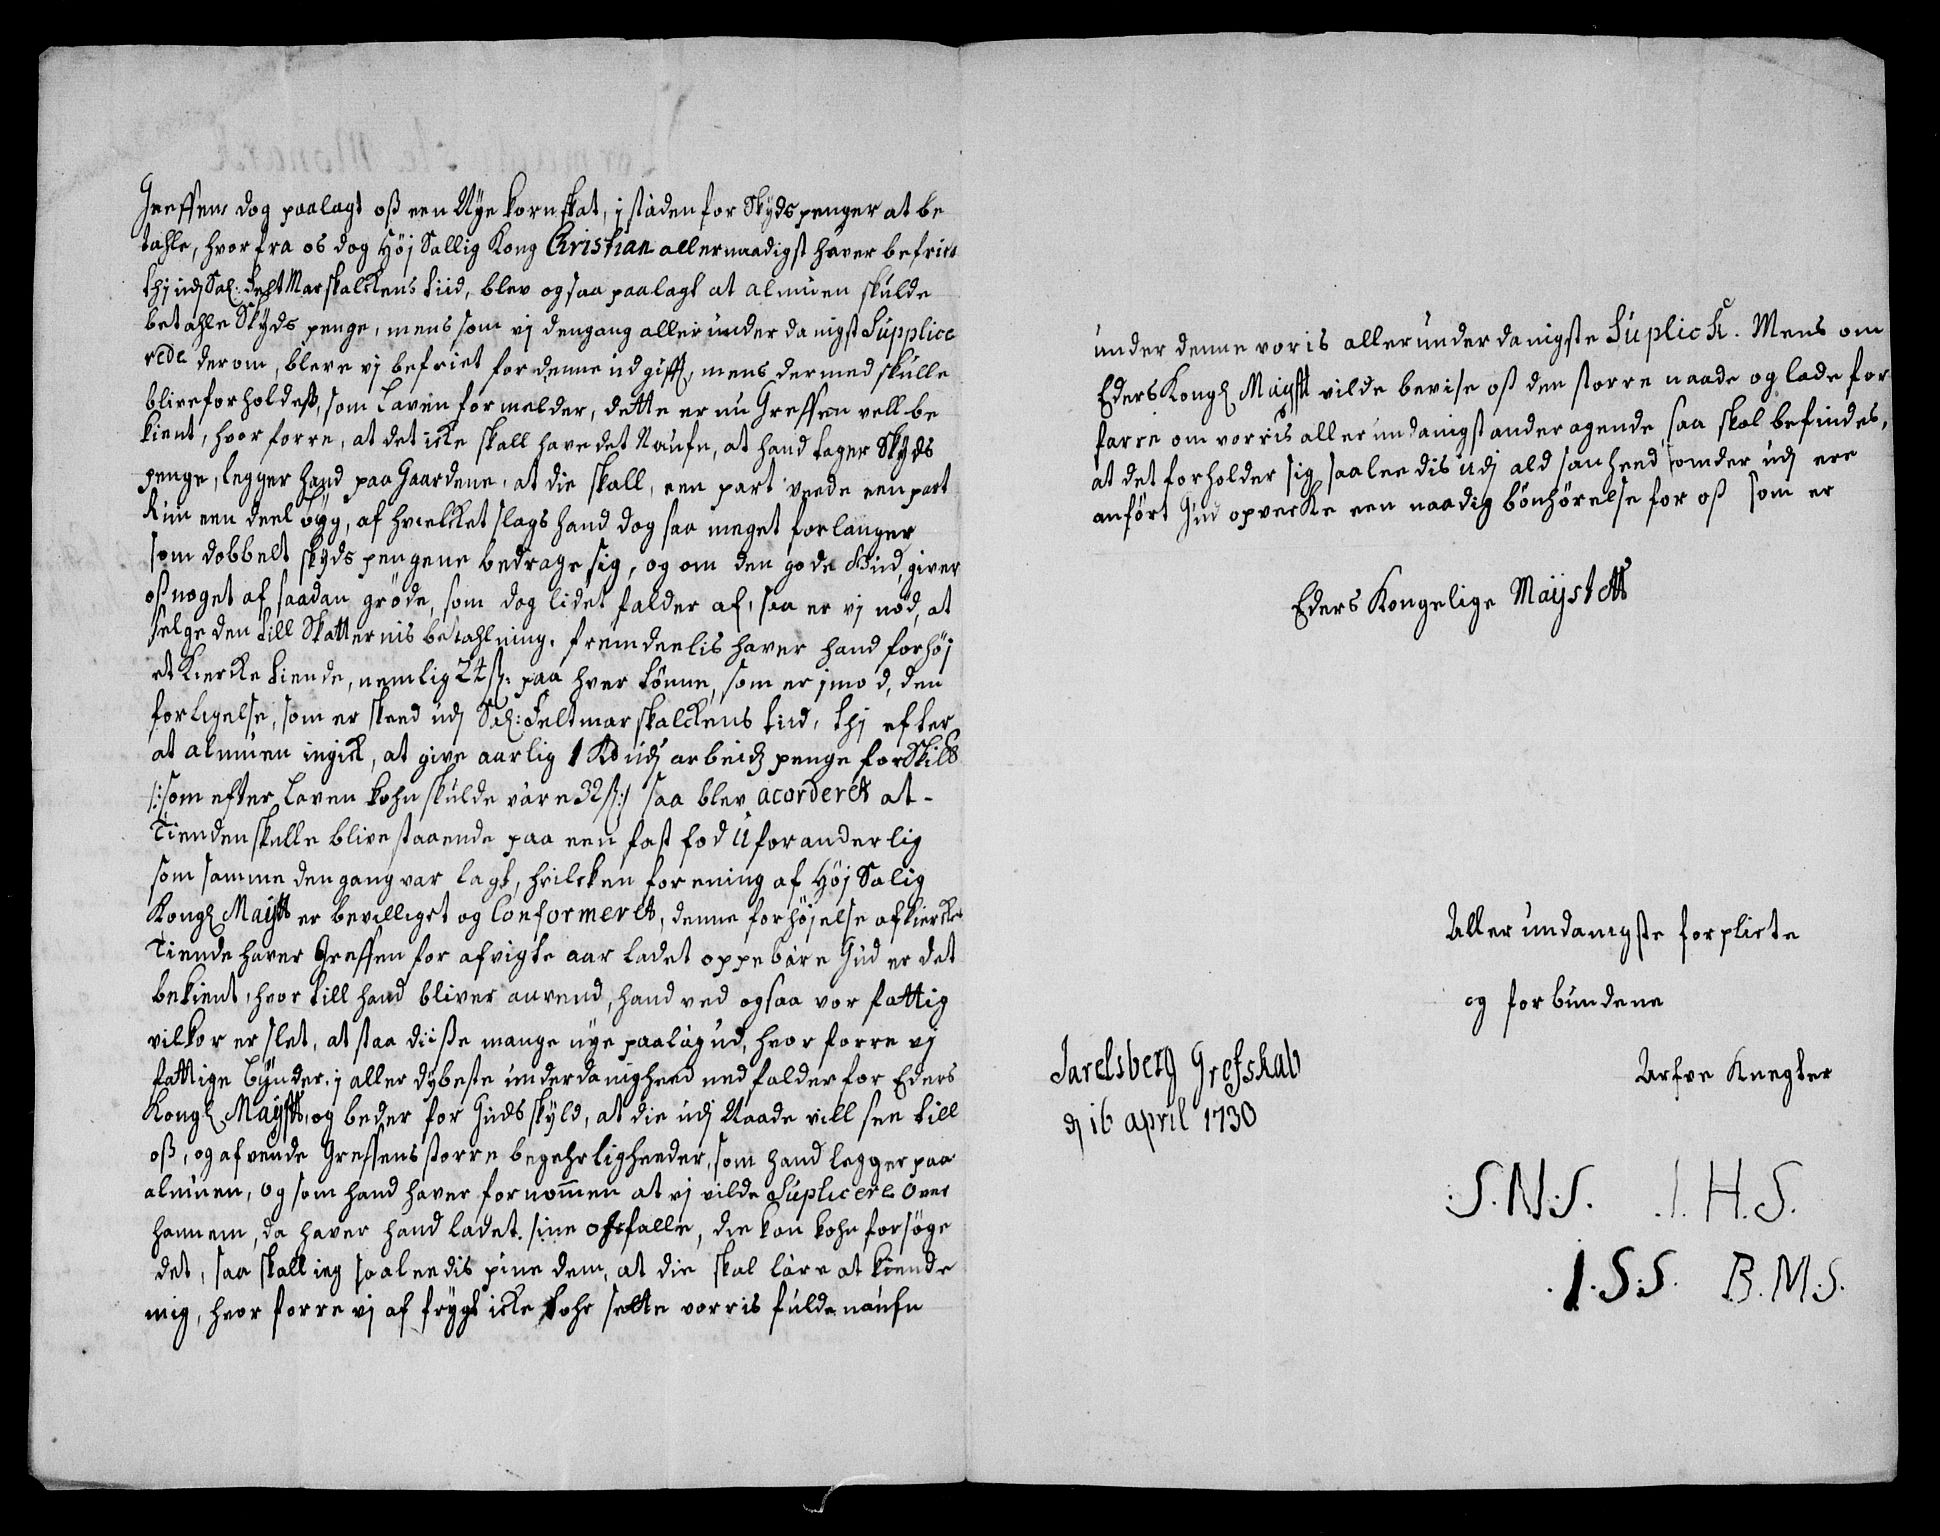 Greffen dog paalagt oß een Nye korn skat, j stæden for Skyds penger at be
tahle, hvor fra os dog Høj Sallig Kong Christian allernaadigst haver befriet
thj udj Sal: Felt Marskalckens tiid, blev ogsaa paalagt at almuen skulde
betahle Skyds penge, mens som vj dengang aller under danigst Supplice
rede derom, bleve vj befriet for denne udgifft, mens dermed skulle
blive forholdeß, som Laven formelder, dette er nu Greffen vell be
kient, hvor forre, at det icke skall have det Naufn, at hand tager Skyds
penge, legger hand paa Gaardene, at die skall, een part veede een part
Ruu een deel byg, af hvelcket slags hand dog saa meget forlanger
som dobbelt skyds pengene bedrage sig, og om den gode Gud, giver
oß noget af saadan grøde, som dog lidet falder af, saa er vj nød, at
selge den till Skatternis betahlning. fremdeelis haver hand forhøj
et Kiercke tiende, nemlig 24 ß: paa hver tønne, som er jmod, den
forligelse, som er skeed udj Sal: Feltmarskalckens tiid, thj efter
at almuen ingick, at give aarlig 1 Rd udj arbeidz penge for Skild
/:som efter Laven kohn skulde være 32 ß:/ saa blev acorderet at -
Tienden skulle blive staaende paa een fast fod uforanderlig
som samme den gang var lagt, hvilcken forening af Høj Salig
Kongl Maijtt er bevilliget og Conformeret, denne forhøjelse af kiercke
Tiende haver Greffen for afvigte aar ladet oppebære Gud er det
bekient, hvor till hand bliver anvend, hand ved ogsaa vor fattig
vilkor er slet, at staa diiße mange nye paalæg ud, hvor forre vj
fattige Bynder, j aller dybeste underdanigheed nedfalder for Eders
Kongl Maijstt, og beder for Guds skyld, at die udj Naade vill see till
oß, og afvende Greffens storre begehrligheeder, som hand legger paa
almuen, og som hand haver fornommen at vj vilde Suplicere over
hannem, da haver hand ladet sine ohrfalle, die kan kohn forsøge
det, saa skall ieg saaleedis pine dem, at die skal lære at kiende
mig, hvor forre vj af frygt icke tohr sette vorris fulde naufn
under denne voris allerunderdanigste Suplick. Mens om
Eders Kongl Maijstt vilde bevise oß den storre naade og lade for
farre om vorris allerundanigst anderagende, saa skal befindes,
at det forholder sig saaleedis udj ald sanheed som der udj ere
anført Gud opvecke een naadig bønhørelse for oß som er
Eders Kongelige Maijstett
Aller undanigste forplicte
og forbundene
Arfve Knegter
Jarelsberg Grefskab
d 16 april 1730
:S.N:S. .I.H.S.
.I.S:S. B.M:S.